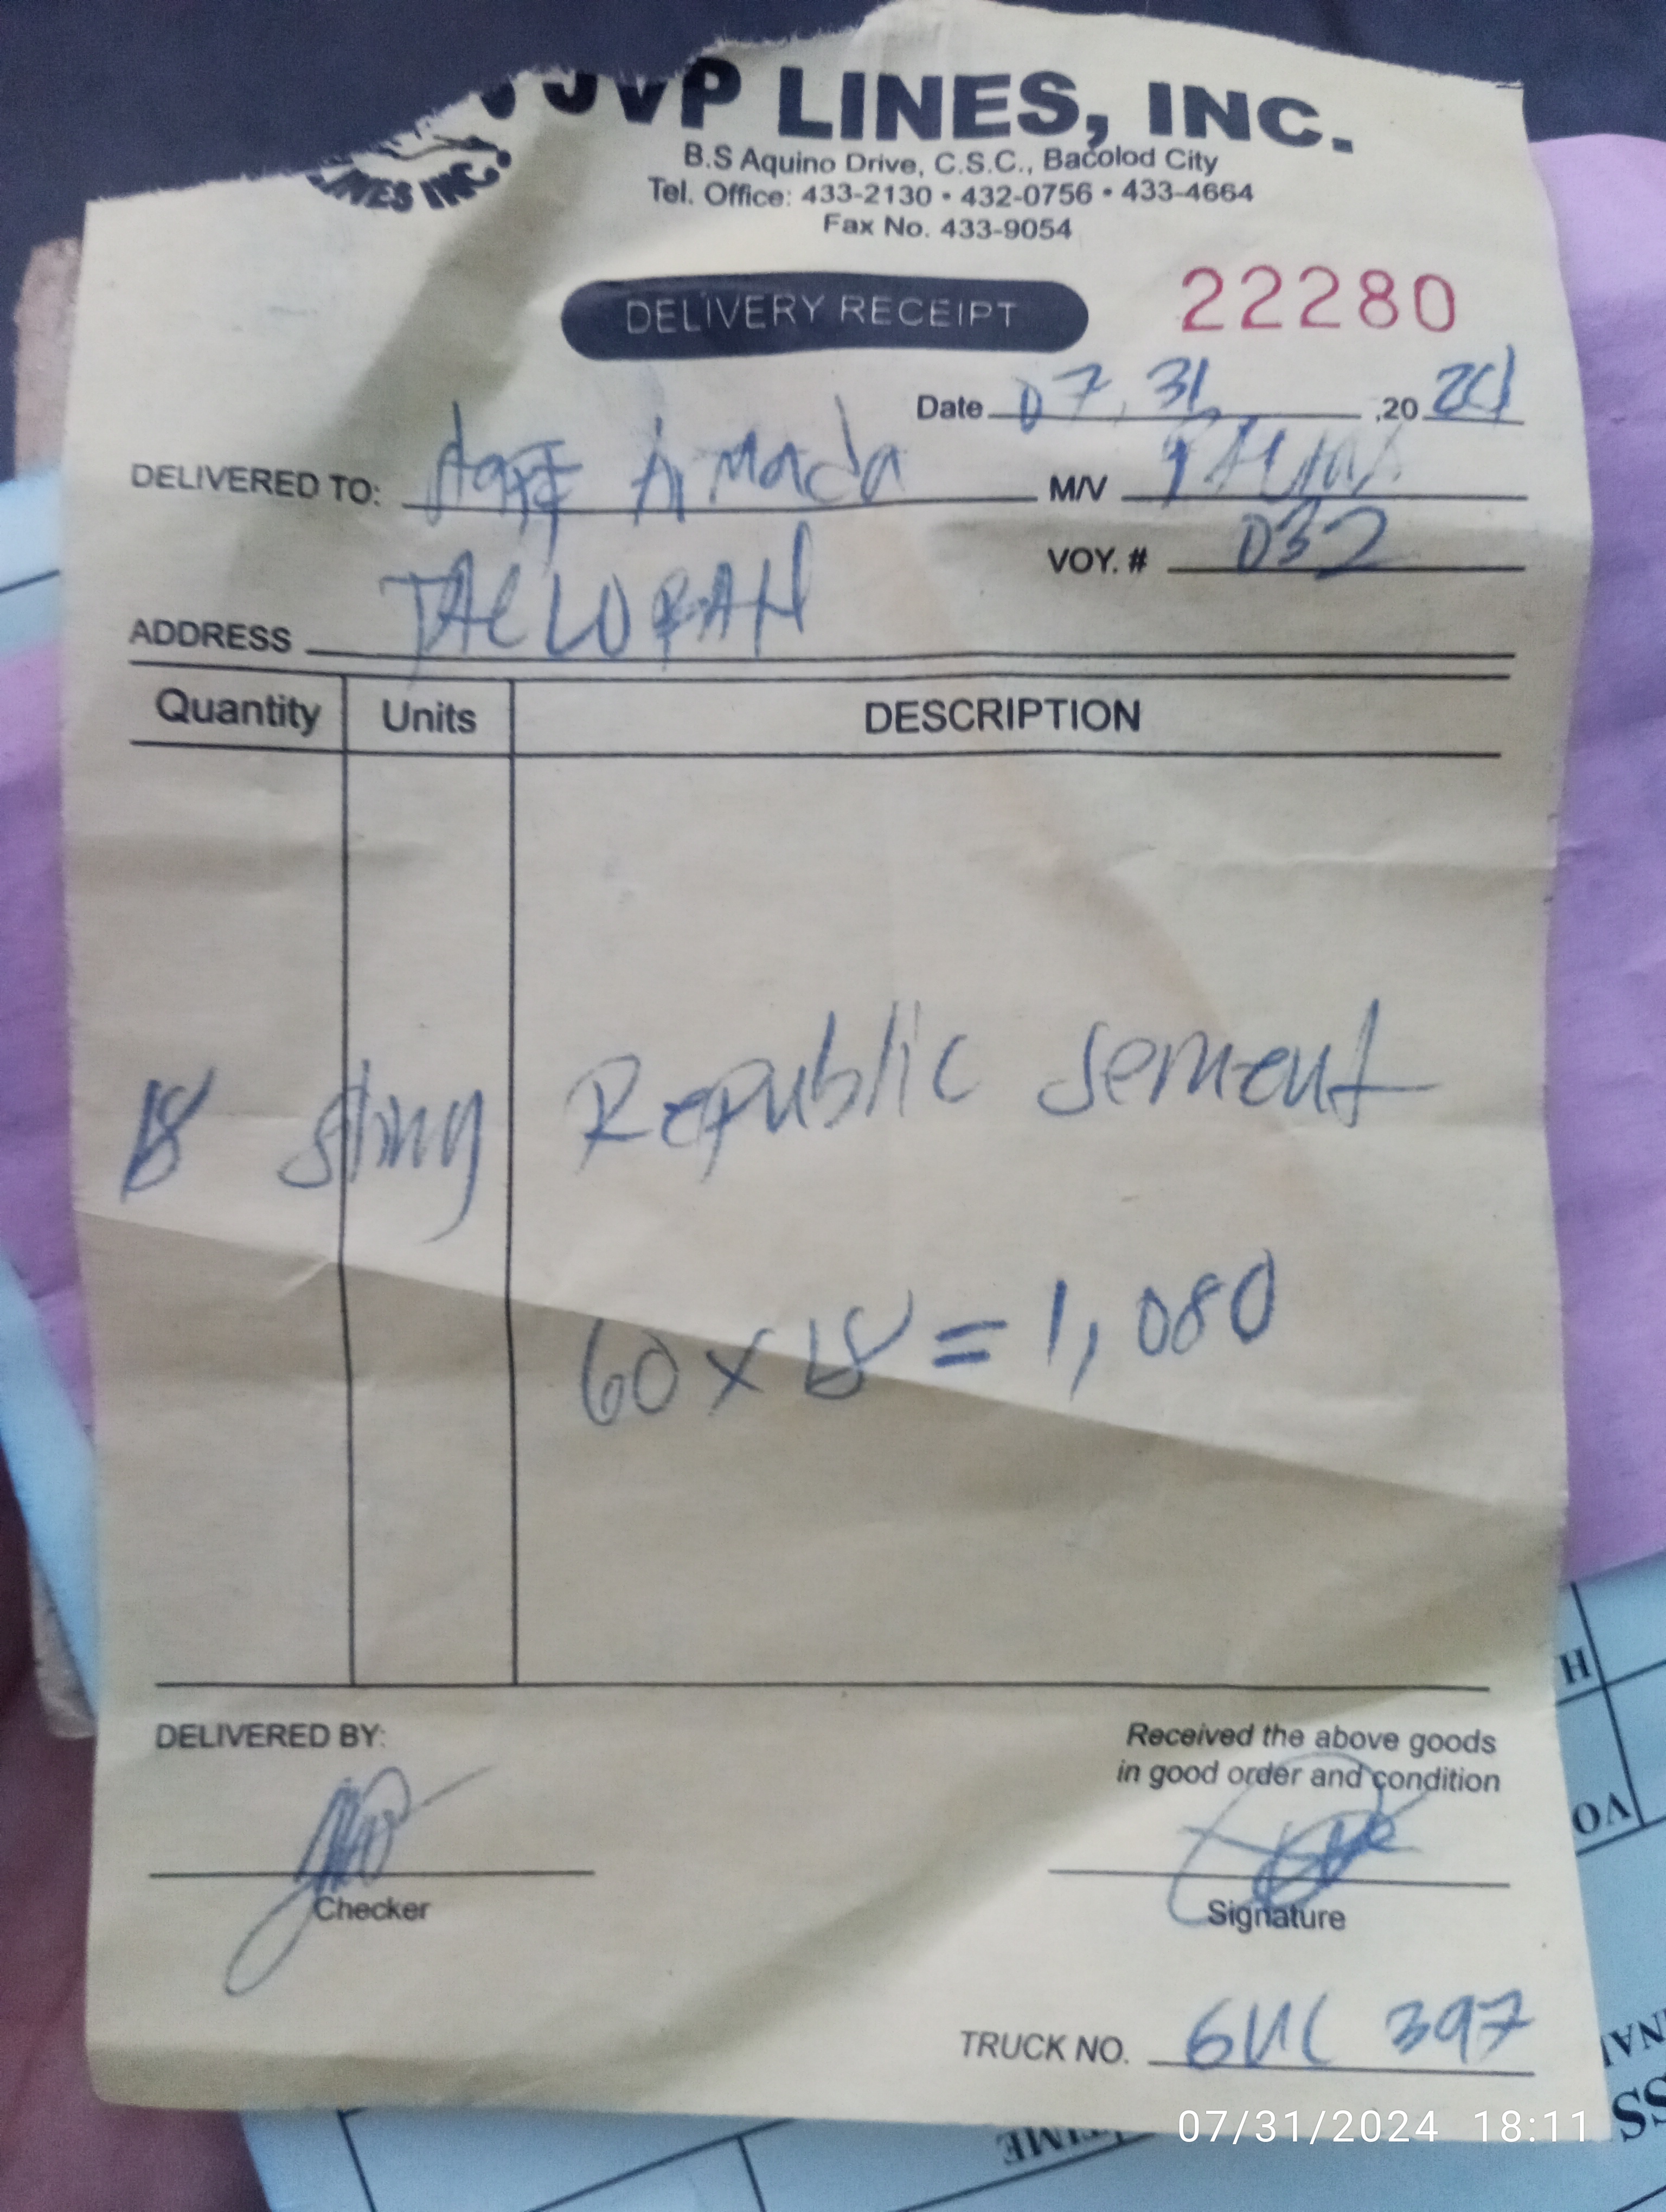 JVP LINES, INC.
LINES INC.
B.S Aquino Drive, C.S.C., Bacolod City
Tel. Office: 433-2130 • 432-0756 • 433-4664
Fax No. 433-9054
DELIVERY RECEIPT 22280
Date 07, 31, 20 24
DELIVERED TO: Armada M/V
VOY. # 032
ADDRESS TACLOBAN
Quantity Units DESCRIPTION
18 sling Republic sement
60 x 18 = 1,080
DELIVERED BY:
Received the above goods
in good order and condition
Checker
Signature
TRUCK NO. GUC 397
07/31/2024 18:11
H
VO
SS
TIME